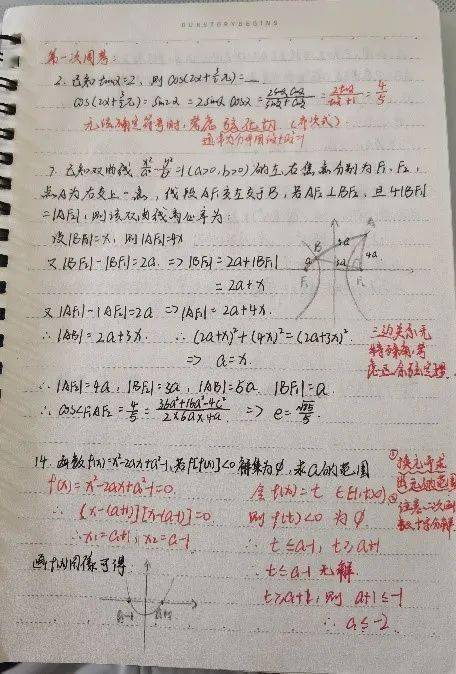 OURSTORYBEGINS
第一次周考:
2. 已知tanα=2, 则 cos(2α+3/2π)=__
cos(2α+3/2π)= sin2α = 2sinα cosα = 2sinα cosα/sin²α+cos²α = 2tanα/tan²α+1 = 4/5
无法确定符号时, 考虑 弦化切 (齐次式)
通常为分母用sin²+cos²=1
7. 已知双曲线 x²/a² - y²/b² =1(a>0,b>0)的左右焦点分别为F₁, F₂,
点A为右支上一点, 线段AF₁交左支于B, 若AF₂⊥BF₂, 且4|BF₁|
=|AF₂|, 则该双曲线离心率为:
设|BF₁|=x, 则|AF₂|=4x
又 |BF₂|-|BF₁|=2a ⇒|BF₂|=2a+|BF₁|
=2a+x
又 |AF₁|-|AF₂|=2a ⇒|AF₁|=2a+4x.
∴ |AB|=2a+3x. ∴ (2a+x)²+(4x)²=(2a+3x)²
⇒ a=x.
三边关系无
特殊角,考
虑余弦定理
∴ |AF₂|=4a, |BF₂|=3a, |AB|=5a. |BF₁|=a
∴ cos∠F₁AF₂=4/5=36a²+16a²-4c²/2×6a×4a ⇒ e=√85/5.
A
B
5a
4a
3a
a
F₁
F₂
14. 函数f(x)=x²-2ax+a²-1, 若f[f(x)]<0 解集为φ, 求a的范围
f(x)=x²-2ax+a²-1=0.
∴ [x-(a+1)][x-(a-1)]=0
∴x₁=a+1, x₂=a-1
画f(x)图像可得:
a-1
a+1
令 f(x)=t ∈[-1,+∞)
则 f(t)<0 为 φ
∴ t≤a-1, t≥a+1
t≤a-1 无解
t≥a+1, 则 a+1≤-1
∴ a≤-2
① 换元寻求
出元的范围
② 注意二次函
数十字分解